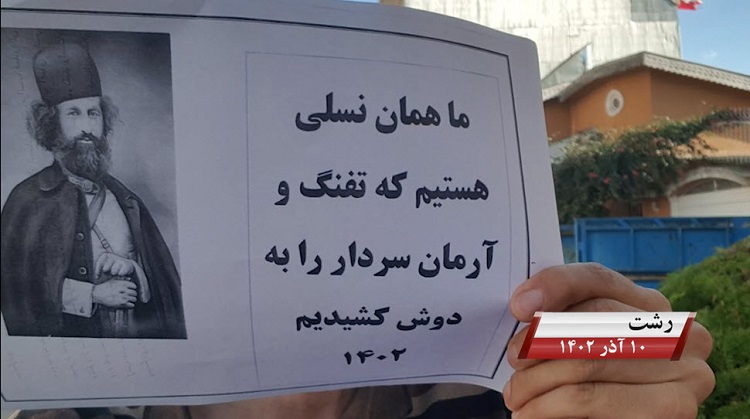 ما همان نسلی
هستیم که تفنگ و
آرمان سردار را به
دوش کشیدیم
۱۴۰۲
رشت
۱۰ آذر ۱۴۰۲